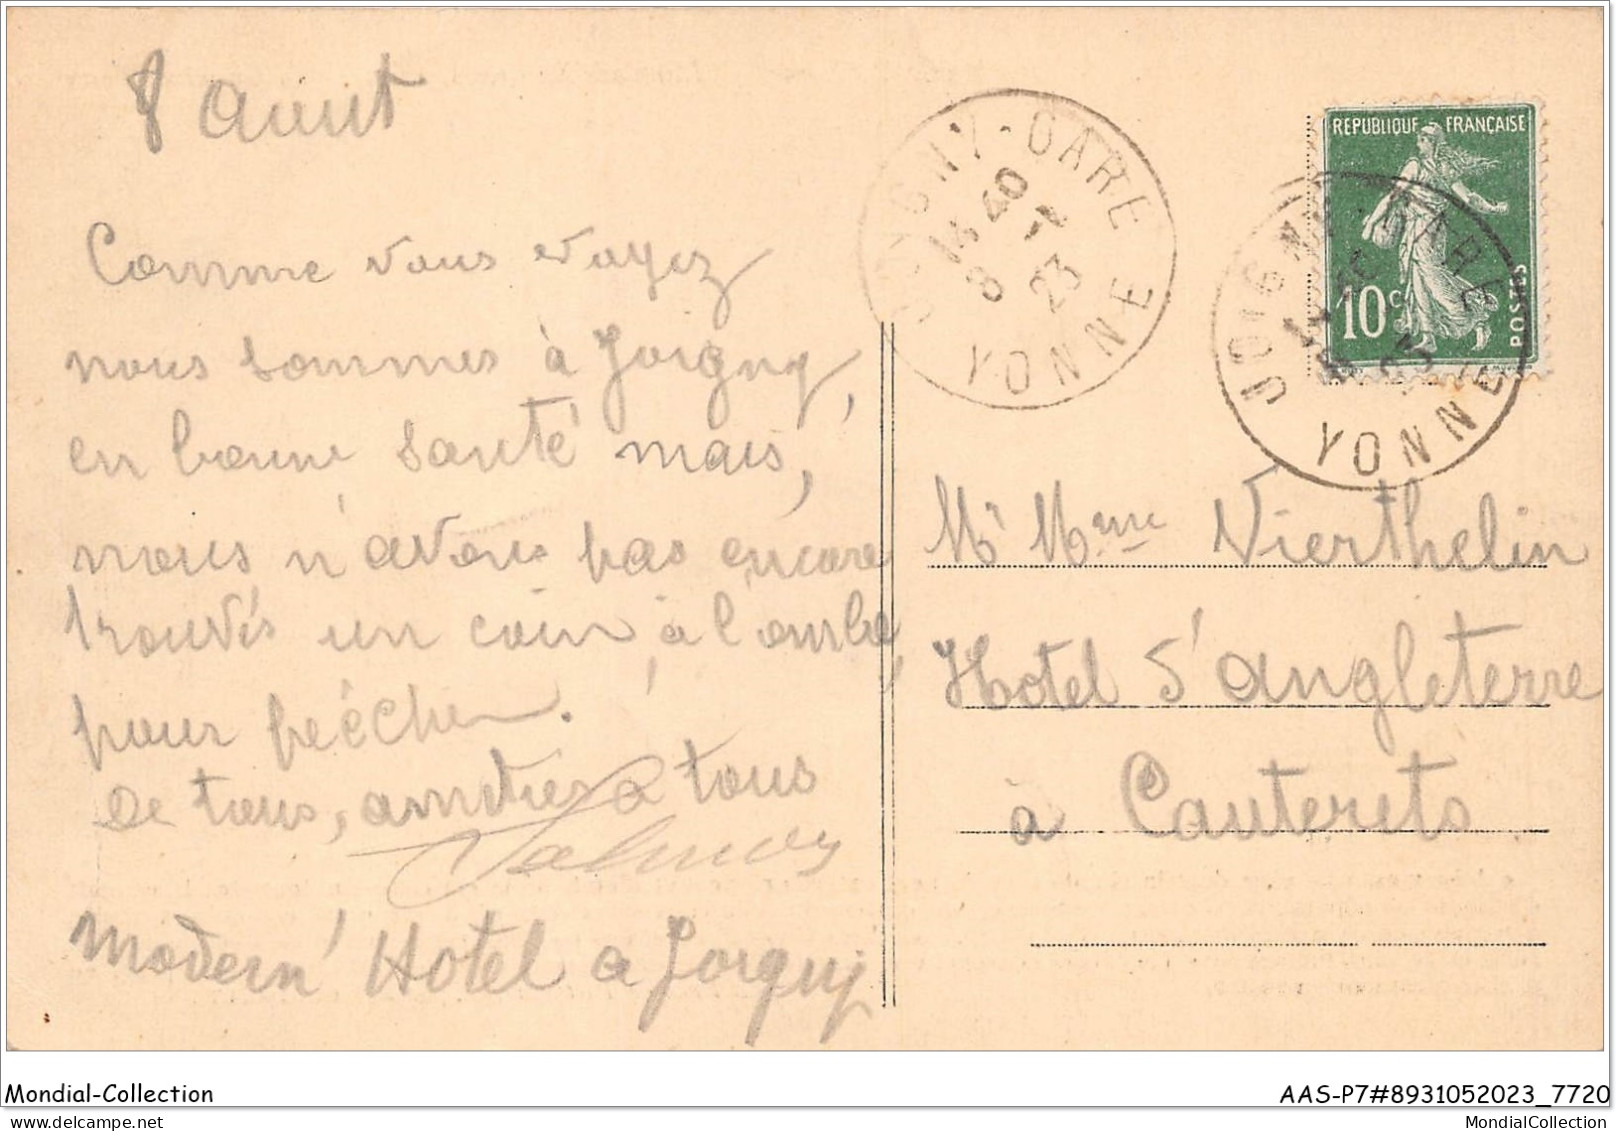 8 Aout
Comme vous voyez
nous sommes à Joigny,
en bonne santé mais,
nous n'avons pas encore
trouvés un coin à l'ombre,
pour pêécher.
de tous, amitiés à tous
Modern' Hotel a Joigny
JOIGNY-GARE
14 40
8 - 7
23
YONNE
REPUBLIQUE FRANÇAISE
10c
POSTES
JOIGNY-GARE
YONNE
Mr Mme Vierthelin
Hotel d'angleterre
à Cauterets
Mondial-Collection
AAS-P7#8931052023_7720
MondialCollection